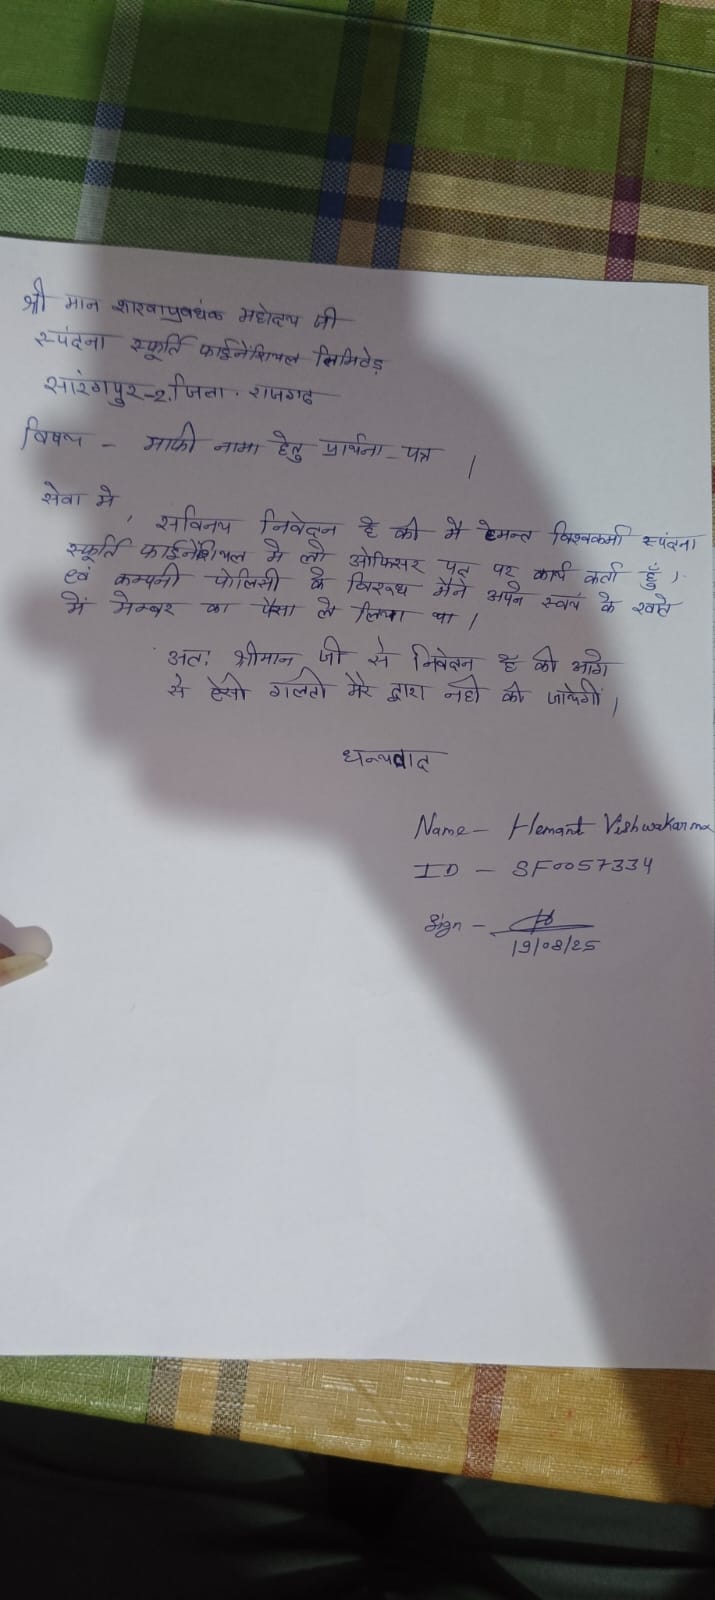 श्री मान शाखाप्रवधंक महोदय जी
स्पंदना स्फूर्ति फाईनेंशियल लिमिटेड़
सारंगपुर-2, जिला. राजगढ
विषय - माफी नामा हेतु प्रार्थना-पत्र |
सेवा मे
, सविनय निवेदन है की मै हेमन्त विश्वकर्मा स्पंदना
स्फूर्ति फाईनेंशियल मे लो ओफिसर पद पर कार्य कर्ता हूँ।
एवं कम्पनी पोलिसी के विरूध मैने अपने स्वयं के खाते
में मेम्बर का पैसा ले लिया था।
अतः श्रीमान जी से निवेदन है की आगे
से ऐसी गलती मेरे द्वारा नही की जायेगीं।
धन्यवाद
Name - Hemant Vishwakarma
ID - SF0057334
Sign -
19/08/25